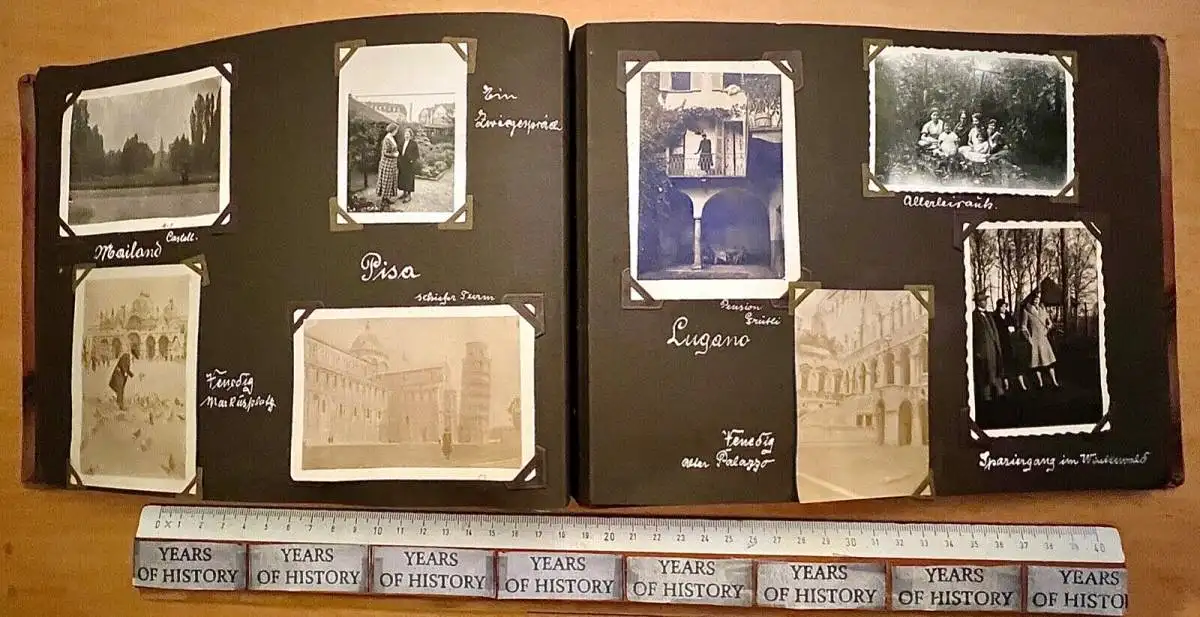 Castell.
Mailand
Ein
Zwiegespräch
Pisa
schiefer Turm
Venedig
Markusplatz
Pension
Grütli
Lugano
Venedig
alter Palazzo
Allerleirauh.
Spaziergang im
0 1 2 3 4 5 6 7 8 9 10 11 12 13 14 15 16 17 18 19 20 21 22 23 24 25 26 27 28 29 30 31 32 33 34 35 36 37 38 39 40
YEARS
OF HISTORY
YEARS
OF HISTORY
YEARS
OF HISTORY
YEARS
OF HISTORY
YEARS
OF HISTORY
YEARS
OF HISTORY
YEARS
OF HISTORY
YEARS
OF HISTO